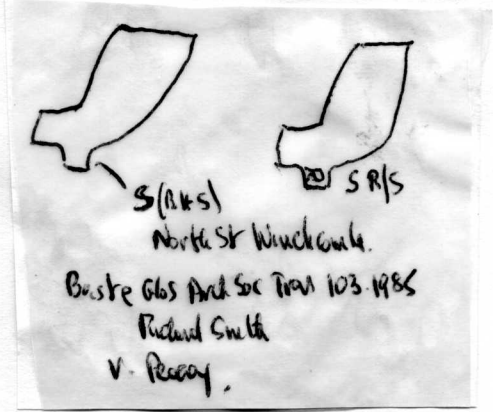 S (BKS)
S R/S
North St Winchcombe.
Brist & Glos Arch Soc Trans 103. 1985
Richard Smith
V.